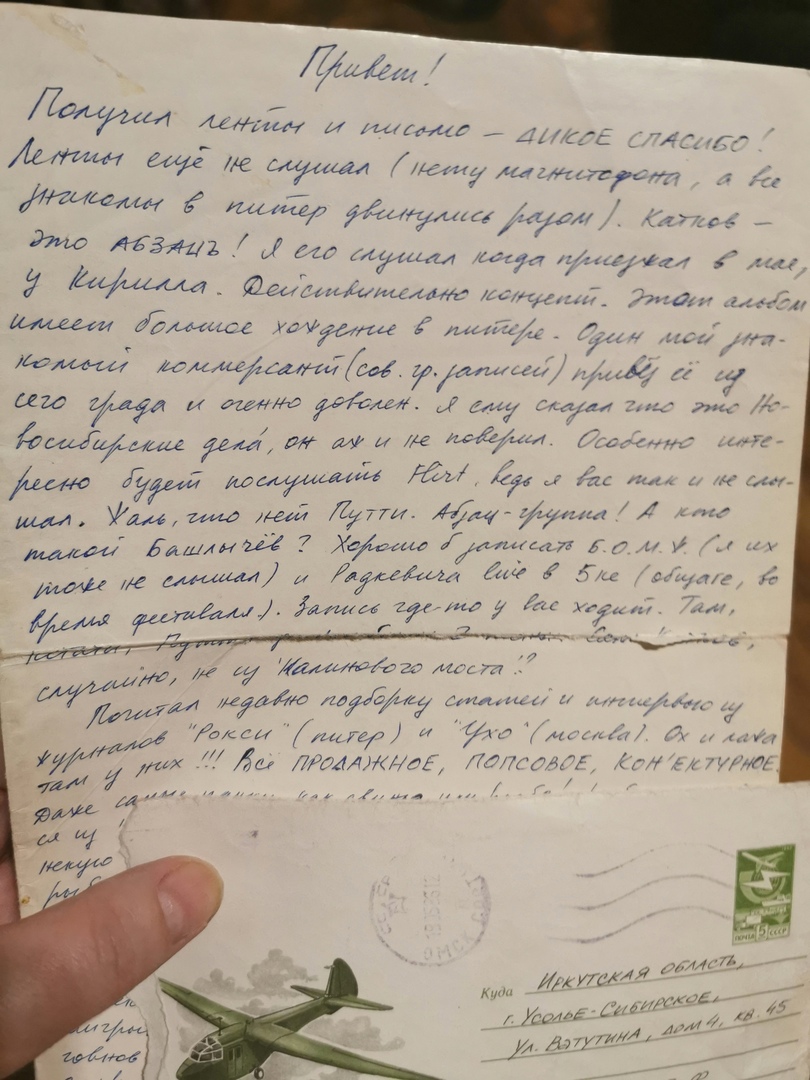 Привет!
Получил ленты и письмо – ДИКОЕ СПАСИБО!
Ленты ещё не слушал (нету магнитофона, а все
знакомы в питер двинулись разом). Катков –
это АБЗАЦЪ! Я его слушал когда приезжал в мае,
у Кирилла. Действительно концепт. Этот альбом
имеет большое хождение в питере. Один мой зна-
комый коммерсант (сов. гр. записей) привёз её из
сего града и оченно доволен. Я ему сказал что это Но-
восибирские дела́, он ах и не поверил. Особенно инте-
ресно будет послушать Flirt, ведь я вас так и не слы-
шал. Жаль, что нет Путти. Абзац-группа! А кто
такой Башлычёв? Хорошо б записать Б.О.М.Ж. (я их
тоже не слышал) и Радкевича live в 5ке (общаге, во
время фестиваля). Запись где-то у вас ходит. Там,
кстати,
случайно, не из "Калинового моста"?
Почитал недавно подборку статей и интервью из
журналов "Рокси" (питер) и "Ухо" (москва). Ох и лажа
там у них!!! Всё ПРОДАЖНОЕ, ПОПСОВОЕ, КОН'ЕКТУРНОЕ.
Даже
ся из
некую
ОМСК
ПОЧТА 5 СССР
Куда Иркутская область,
г. Усолье-Сибирское,
ул. Ватутина, дом 4, кв. 45